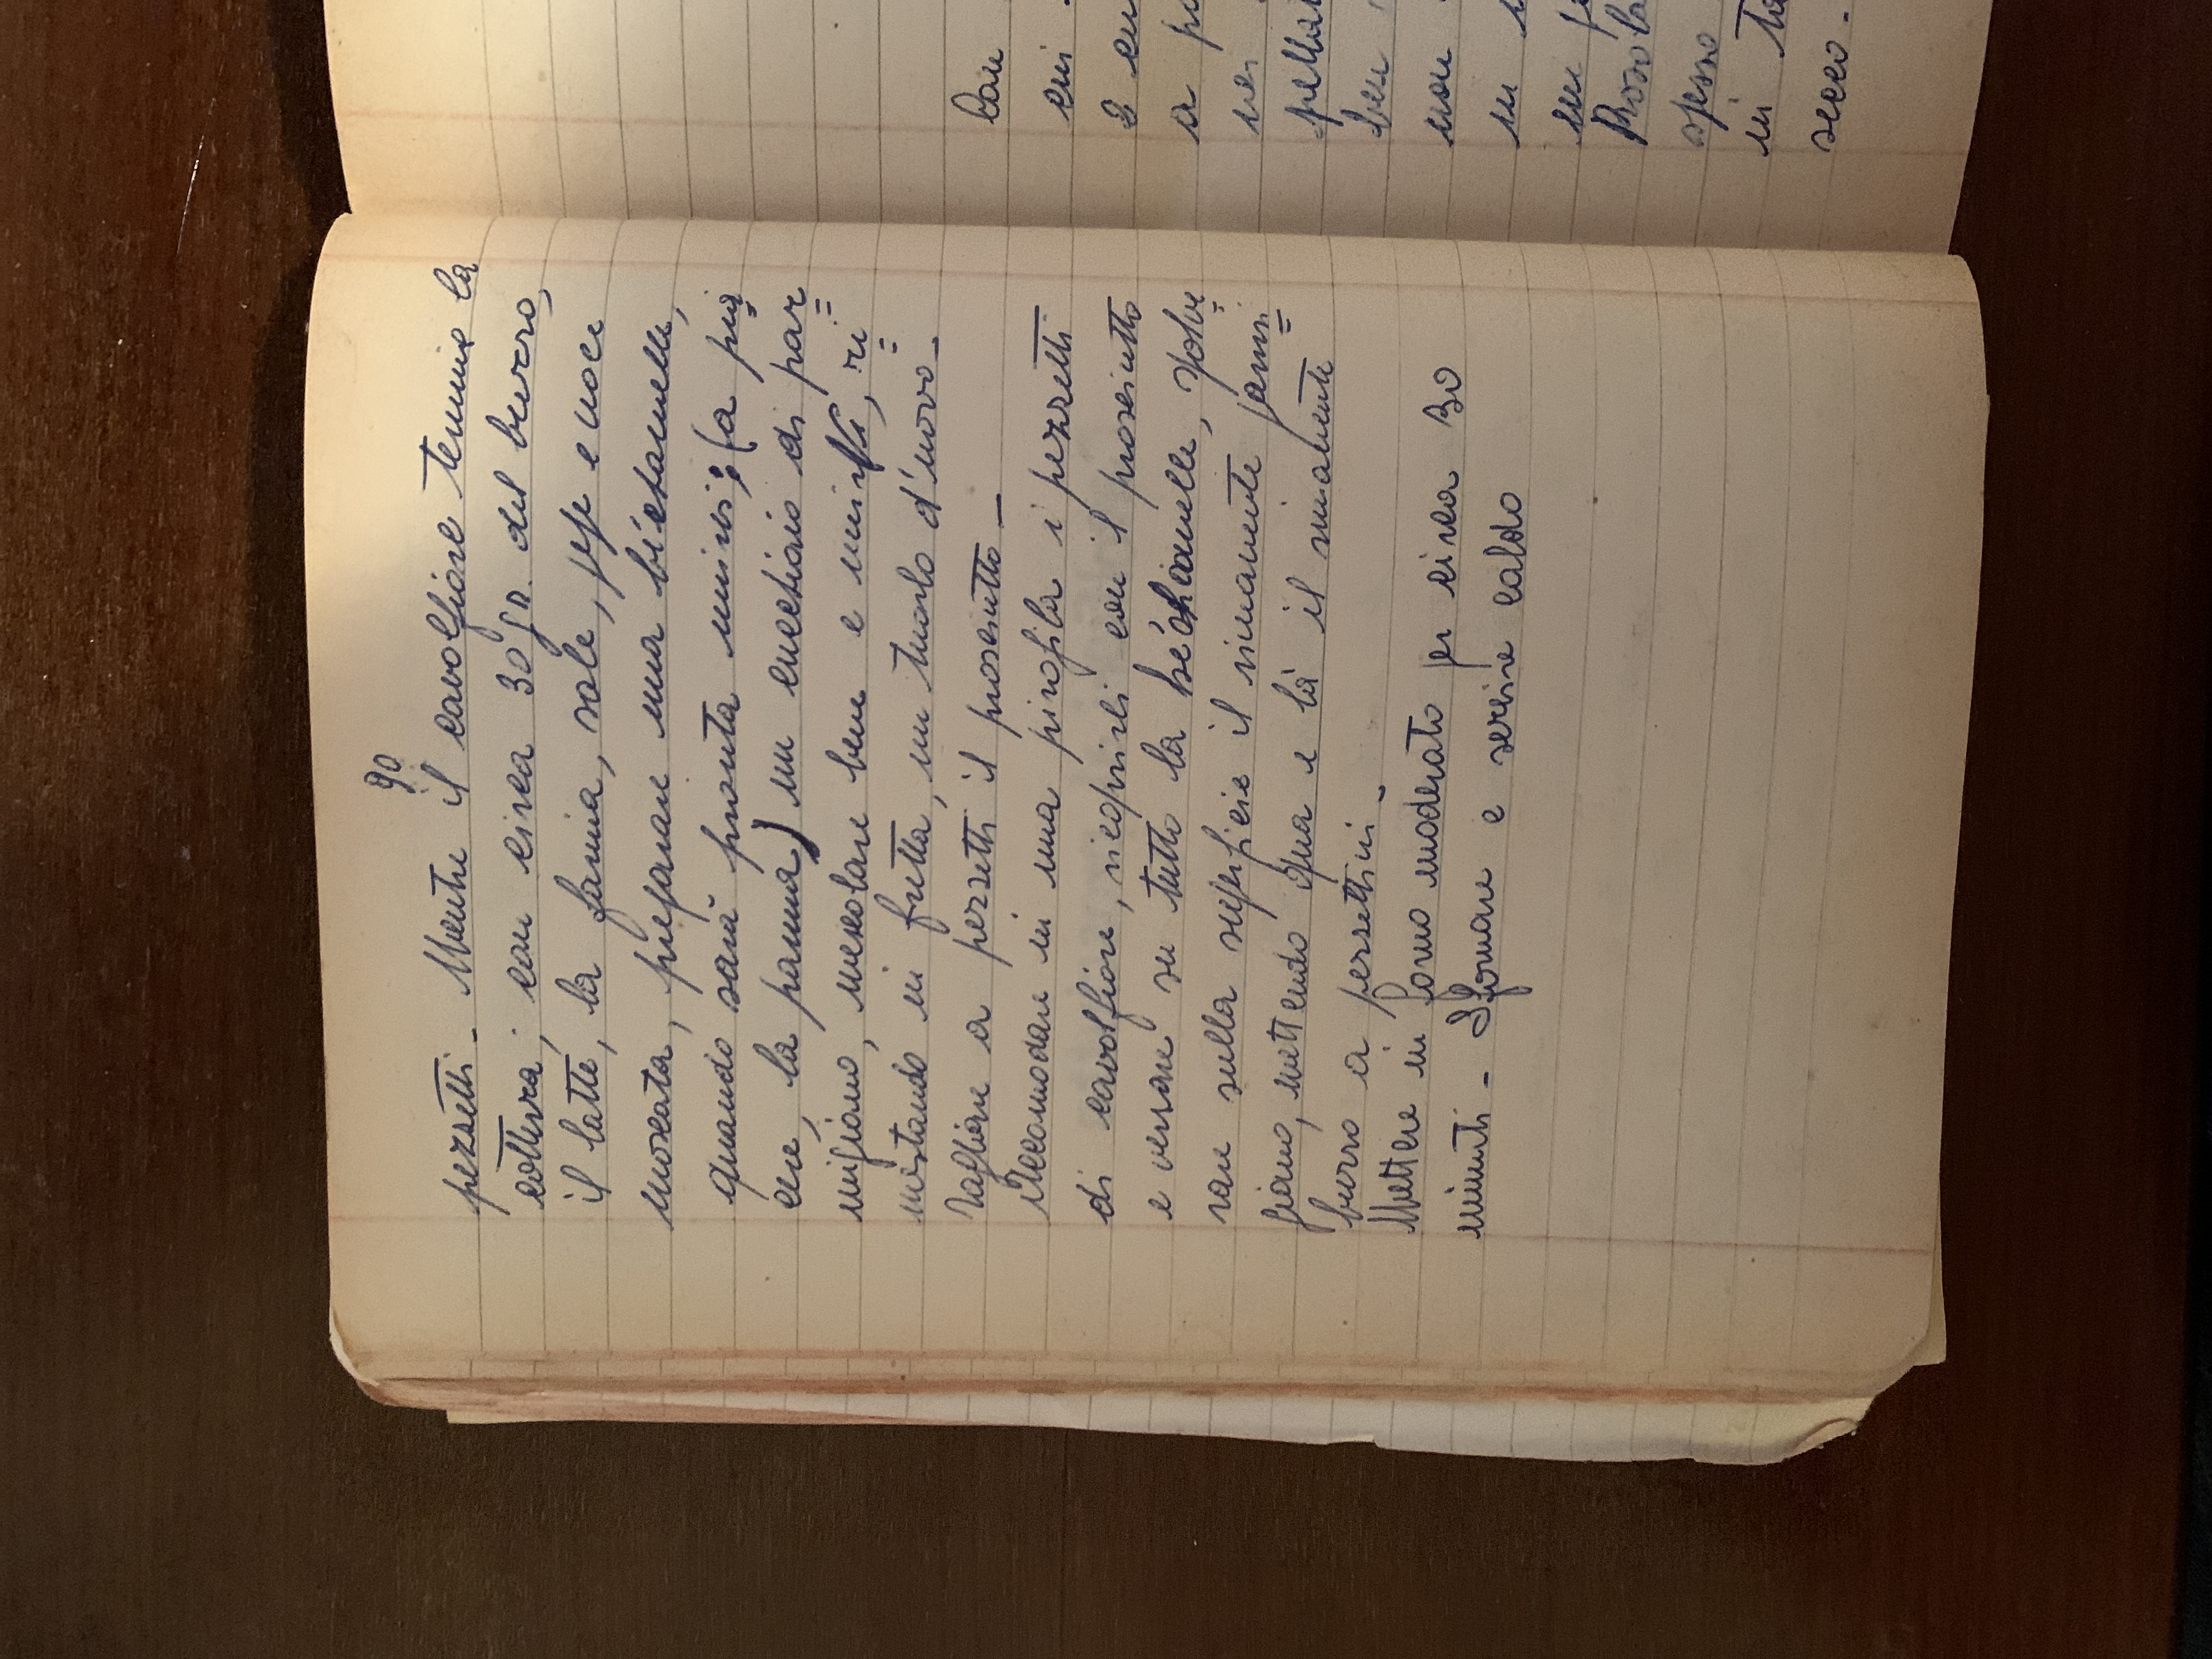 90
pezzetti - Mentre il cavolfiore termina la
cottura; con circa 30 gr. del burro,
il latte, la farina, sale, pepe e noce
moscata, preparare una béchamelle,
quando sarà pronta unirvi; (a pia
cere, la panna) un cucchiaio di par=
migiano, mescolare bene e unirvi, ri=
mestando in fretta, un tuorlo d'uovo -
Tagliare a pezzetti il prosciutto -
Accomodare in una pirofila i pezzetti
di cavolfiore, ricoprirli con il prosciutto
e versare su tutto la béchamelle, spolve=
rare sulla superficie il rimanente parmi=
giano, mettendo qua e là il rimanente
burro a pezzettini -
Mettere in forno moderato per circa 30
minuti - Sfornare e servire caldo
Con
cui
2
a
per
bene
non
in
un
spesso
in
secco -